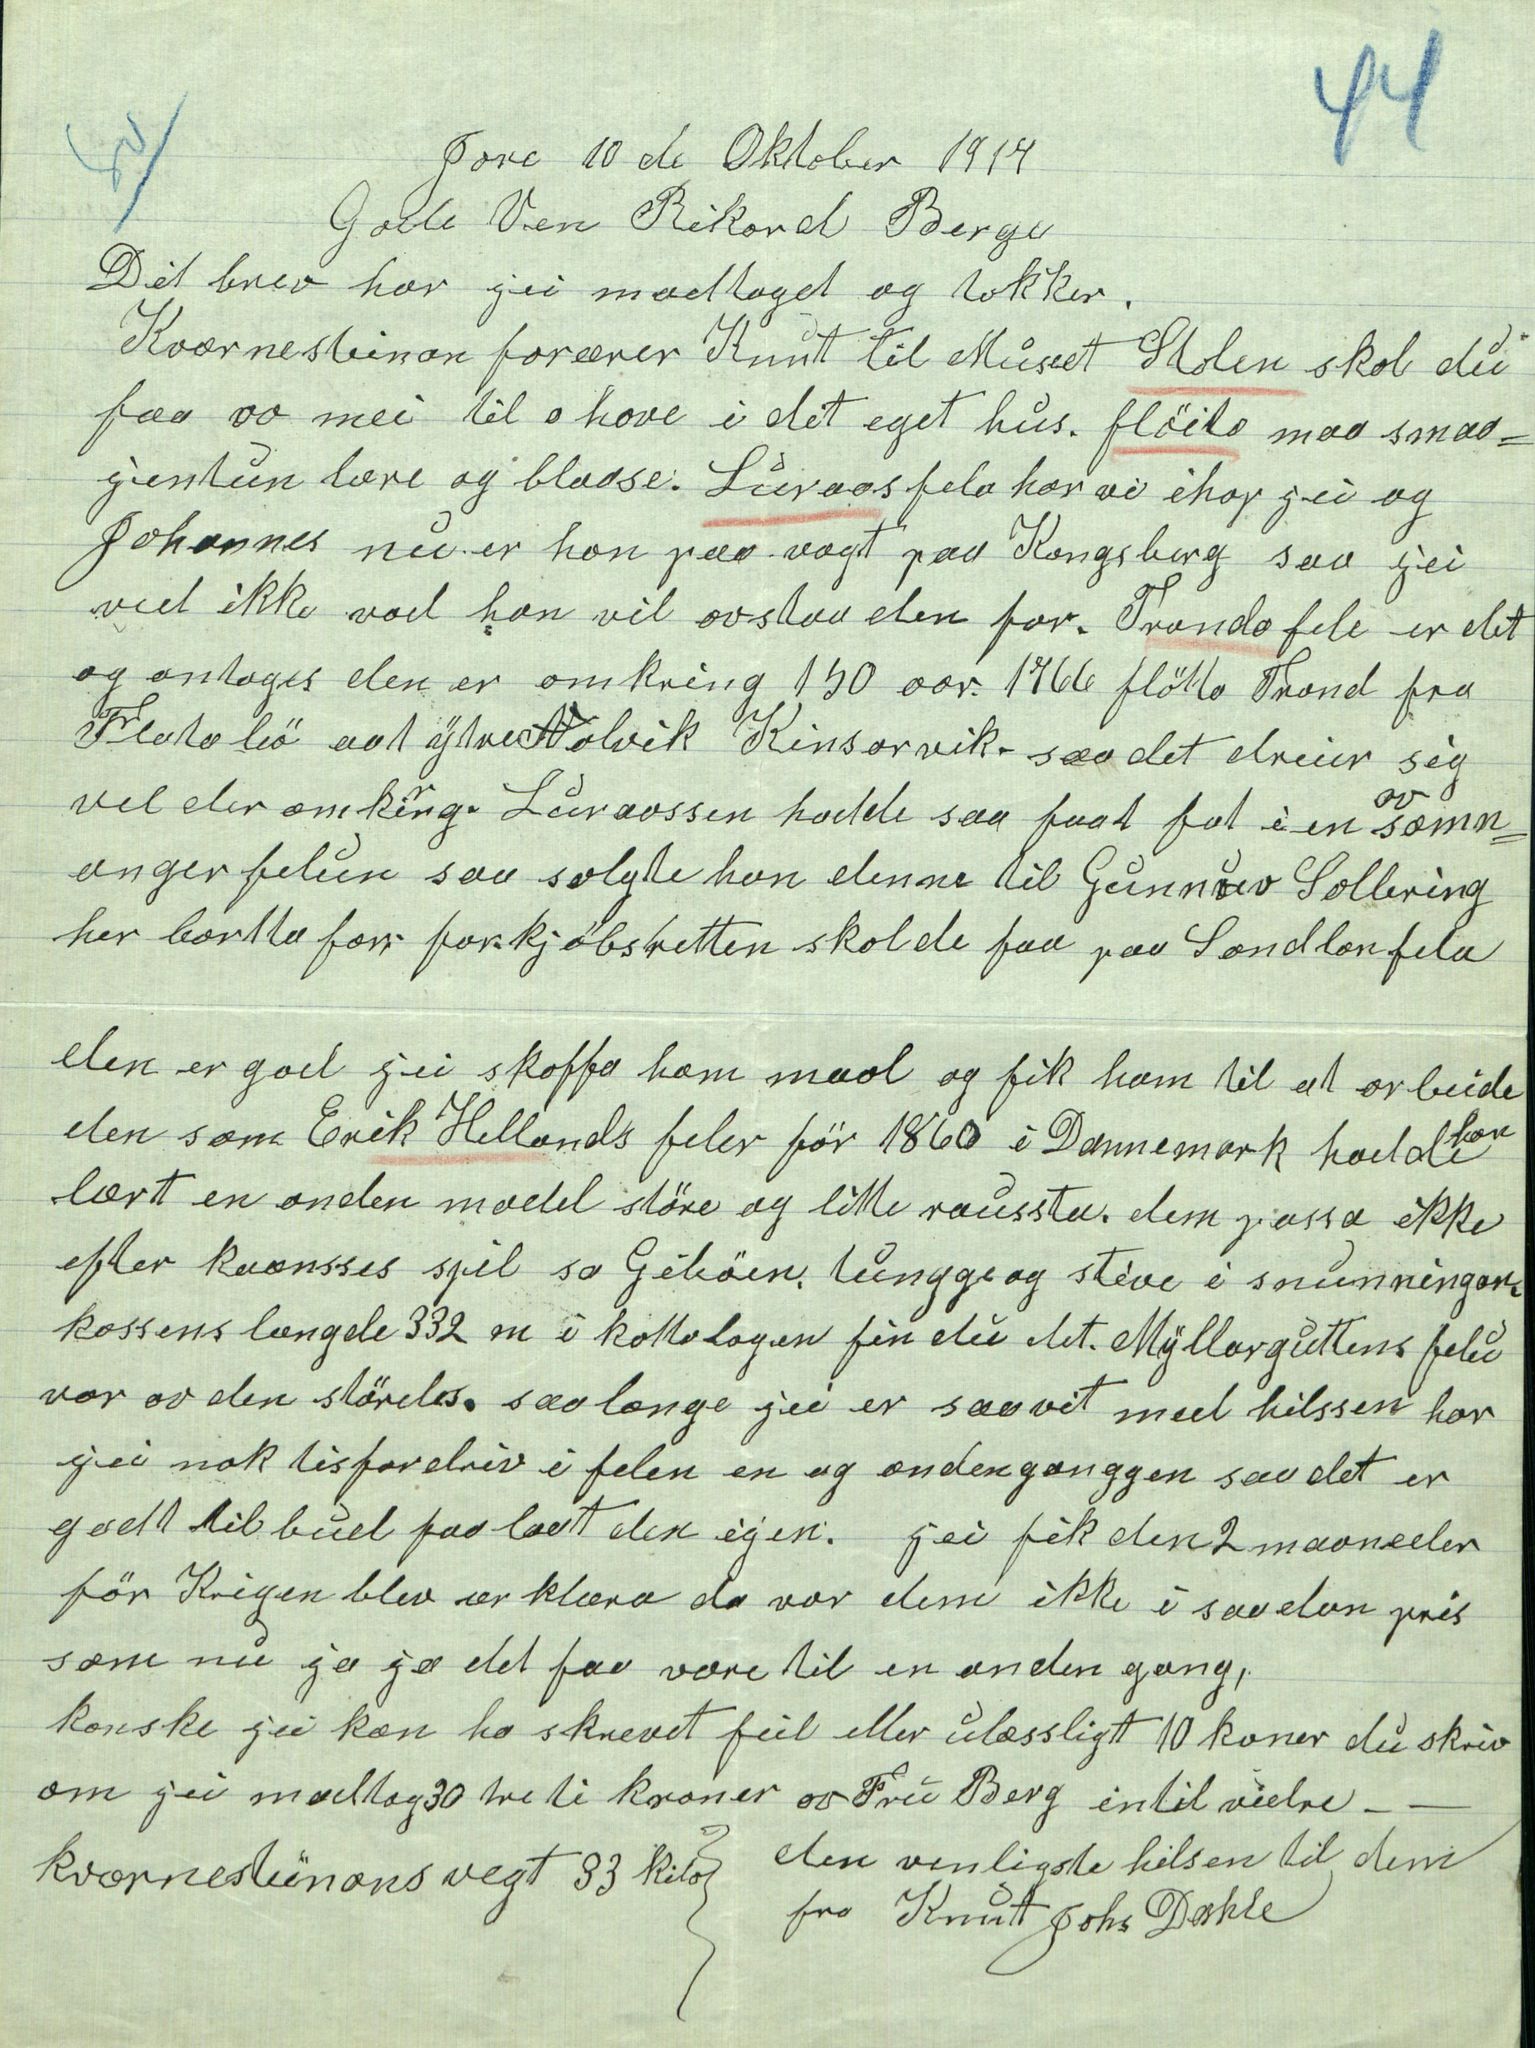 44
Jore 10 de Oktober 1914
Gode Ven Rikard Berge
Dit brev har jei modtaget og takker.
Kværnesteinan forærer Knut til Museet Stolen skal du
faa av mei til a have i dit eget hus. flöita maa smaa=
jentun lære og blaase. Luraas fela har vi ihop jei og
Johannes nu er han paa vagt paa Kongsberg saa jei
ved ikke vad han vil avstaa den for. Tronda fele er det
og antages den er omkring 150 aar. 1766 flötta Trond fra
Flatabö aat ÿtre Aalvik Kinsarvik. saa det dreier sig
vel der omkring. Luraassen hadde saa faat fat i en av samn=
anger felun saa solgte han denne til Gunnuv Sollering
her bortta for forkjöbsretten skolde faa paa Sandlan fela
den er god jei skaffa ham maal og fik ham til at arbeide
den som Erik Hellands feler för 1860 i Dannemark hadde han
lært en anden model störe og litte raussta. dem passa ikke
efter kvænsses spil sa Giböen. tungge og stive i snunningar.
kassens længde 332 m i kattalogen fin du det. Mÿllarguttens fele
var av den störeles. saalænge jei er saavit med hilssen har
jei nok tisfordriv i felen en og andengonggen saa det er
godt tilbud faa laat den igjen. jei fik den 2 maaneder
för Krigen blev ærklæra da var dem ikke i saadan pris
som nu ja ja det faa være til en anden gang,
kanske jei kan ha skrevet feil eller ulæssligt 10 kaner du skriv
om jei modtog 30 treti kroner av Fru Berg intil viedre _ _
kværnesteinans vegt 33 kilo
den venligste hilsen til dem
fra Knut Johs Dahle